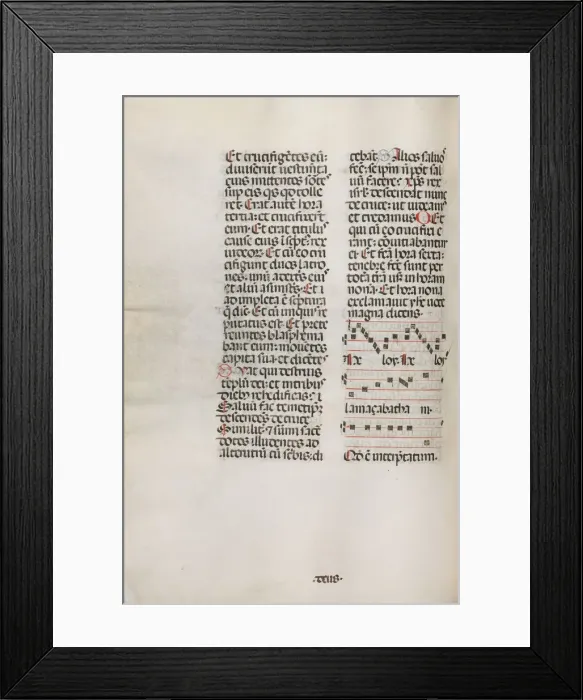 Et crucifigētes eū:
diuiserūt uestimēta
eius mittentes sorte
sup eis qs qd tolle
ret. Erat autē hora
tertia: et crucifixerūt
eum. Et erat titulus
cause eius īscpt: rex
iudeor. Et cū eo cru
cifigunt duos latro
nes. unū a dextris eius
et aliū a sinistris. Et ī
adimpleta ē scptura
q dic. Et cū iniquis re
putatus est. Et prete
reuntes blasphema
bant eum: mouētes
capita sua et dicētes
Vah qui destruis
tēplū dei: et in tribus
dieb rehedificas: ī
Saluū fac temetip:
descendēs de cruce
Similit 7 sūmi sacē
dotes illudentes ad
alterutrū cū scbis: di
cebāt Alios saluos
fec: seipm ñ pot sal
uū facere. Xps rex
isrl: descendat nunc
de cruce: ut uideam
et credamus Et
qui cū eo crucifixi e
rant: cōuitiabantur
ei. Et fcā hora sexta:
tenebre fce sunt per
totā trā usq in horam
nonā. Et hora nona
exclamauit yhs uoce
magna dicens.
loy loy
lamaçabatha ni
Qd ē interptatum.
deus